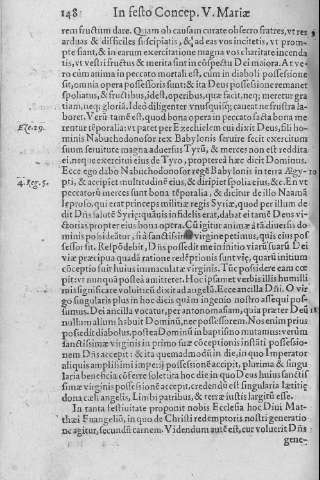 148 In festo Concep. V. Mariæ
rem fructum dare. Quam ob causam curate obsecro fratres, vt res
arduas & difficiles suscipiatis, & ad eas vos incitetis, vt prom-
pte fiant, & in earum exercitatione magna vos charitate incenda
tis, vt vestri fructus & merita sint in cõspectu Dei maiora. At ve-
ro cùm anima in peccato mortali est, cùm in diaboli possessione
sit, omnia opera possessoris sunt: & ita Deus possessione remanet
spoliatus, & fructibus, idest, operibus, quæ facit, neq; meretur gra
tiam, neq; gloriã. Ideò diligenter vnusquisq; caueat ne frustra la-
boret. Verũ tamẽ est, quod bona opera in peccato facta bona me
Eze. 29. rentur tẽporalia: vt patet per Ezechielem cui dixit Deus, fili ho-
minis Nabuchodonosor rex Babylonis seruire fecit exercitum
suum seruitute magna aduersus Tyrũ, & merces non est reddita
ei, neque exercitui eius de Tyro, propterea hæc dicit Dominus.
Ecce ego dabo Nabuchodonosor regẽ Babylonis in terra Ægy- 10
4. Reg. 5. pti, & accipiet multitudinẽ eius, & diripiet spolia eius, &c. En vt
peccatorũ merces sunt bona tẽporalia, & dicitur de illo Naamã
leproso, qui erat princeps militiæ regis Syriæ, quod per illum de
dit Dñs salutẽ Syriæ, quãuis infidelis erat, dabat ei tamẽ Deus vi-
ctorias propter eius bona opera. Cũ igitur animæ à tã diuersis do
minis possideãtur, si à sanctissima virgine petimus, quis eius pos
sessor sit. Respõdebit, Dñs possedit me in initio viarũ suarũ. Dei
viæ præcipua quadã ratione redẽptionis sunt viæ, quarũ initium
cõceptio fuit huius immaculatæ virginis. Tũc possidere eam cœ-
pit: vt nunquã posteà amitteret. Hoc ipsum et verbis illis humilli
mis significare voluit: cũ dixit ad angelũ. Ecce ãncilla Dñi. O vir
go singularis plus in hoc dicis quàm ingenio nostro assequi pos-
sumus. Dei ancilla vocatur, per antonomasiam, quia præter Deũ 18
nullum alium hribuit Dominũ, nec possessorem. Nos enim prius
possedit diabolus, postea Dominũ in baptismo mutamus: verùm
sanctissimæ virginis in primo suæ cõceptionis instãti possessio-
nem Dñs accepit: & ita quemadmodũ in die, in quo Imperator
aliquis amplissimi imperij possessionẽ accipit, plurima & singu
laria beneficia cõferre solet: ita hoc die in quo Deus huius sanctis
simæ virginis possessionẽ accepit, credendũ est singularia lætitiæ
dona cœli angelis, Limbi patribus, & terræ iustis largitũ esse.
In tanta festiuitate proponit nobis Ecclesia hoc Diui Mat-
thæi Euangelium, in quo de Christi redemptoris nostri generatio
ne agitur, secundũ carnem. Videndum autẽ est, cur voluerit Dñs
gene-